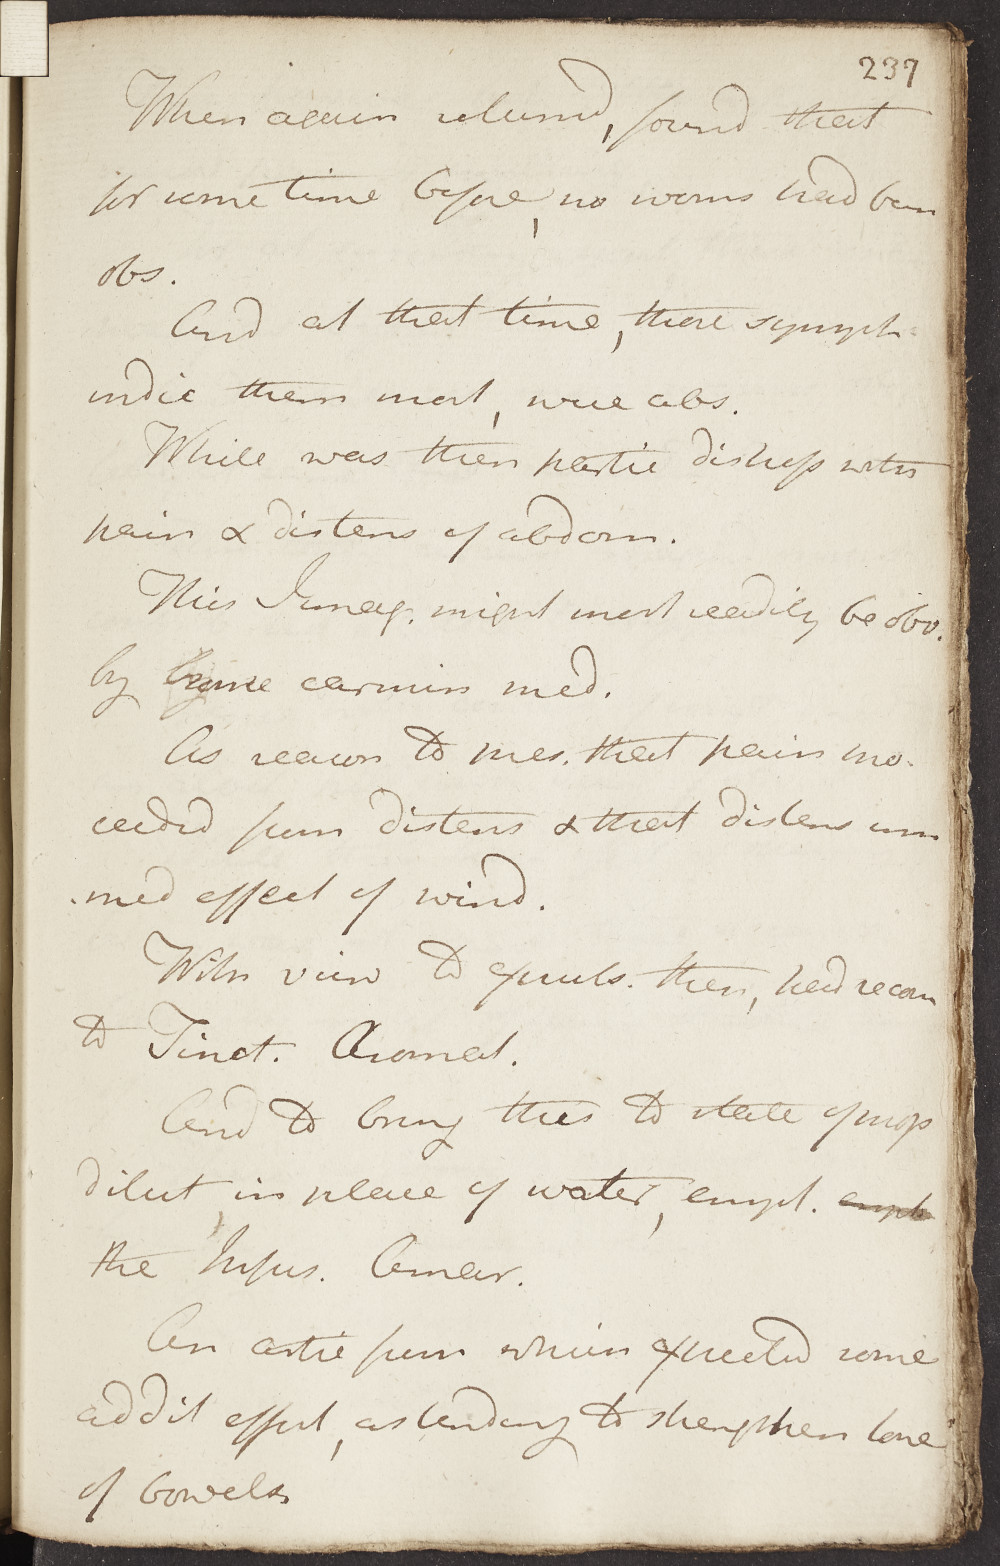 237
When again returned, found that
for some time before, no worms had been
obs.
And at that time, those symph
indic them most, were abs.
While was then partic distress with
pain & distens of abdom.
This I imag. might most readily be obv.
by some carmin med.
As reason to pres. that pain pro-
ceeded from distens & that distens imm
.med effect of wind.
With view to expuls. then, had recou
to Tinct. Aromat.
And to bring this to state of prop
dilut, in place of water, empl.
the Infus. Amar.
An artic from which expected some
addit effect, as tending to strengthen tone
of bowels